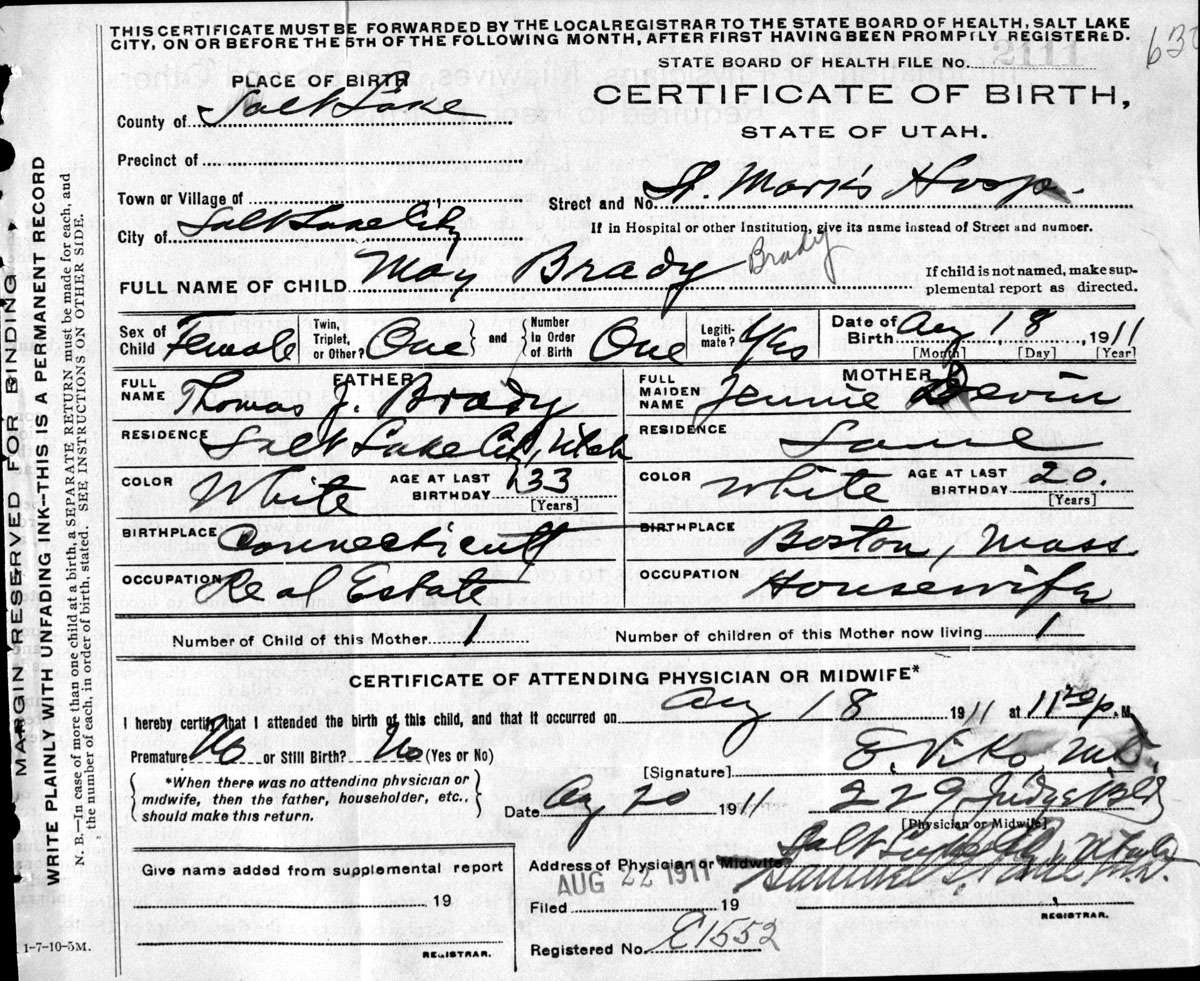 THIS CERTIFICATE MUST BE FORWARDED BY THE LOCALREGISTRAR TO THE STATE BOARD OF HEALTH, SALT LAKE
CITY, ON OR BEFORE THE 5TH OF THE FOLLOWING MONTH, AFTER FIRST HAVING BEEN PROMPTLY REGISTERED.
STATE BOARD OF HEALTH FILE No. 2111
PLACE OF BIRTH
CERTIFICATE OF BIRTH,
STATE OF UTAH.
County of Salt Lake
Precinct of
Town or Village of
Street and No. St. Mark's Hosp.
City of Salt Lake City
If in Hospital or other Institution, give its name instead of Street and number.
FULL NAME OF CHILD May Brady Brady
If child is not named, make sup-
plemental report as directed.
Sex of Child Female
Twin, Triplet, or Other? One } and { Number In Order of Birth One
Legiti- mate? Yes
Date of Birth Aug 18, 1911
[Month] [Day] [Year]
FATHER
MOTHER
FULL NAME Thomas J. Brady
FULL MAIDEN NAME Jennie Devin
RESIDENCE Salt Lake City, Utah
RESIDENCE Same
COLOR White AGE AT LAST BIRTHDAY 33 [Years]
COLOR White AGE AT LAST BIRTHDAY 20. [Years]
BIRTHPLACE Connecticutt
BIRTHPLACE Boston, Mass.
OCCUPATION Real Estate
OCCUPATION Housewife
Number of Child of this Mother 1
Number of children of this Mother now living 1
CERTIFICATE OF ATTENDING PHYSICIAN OR MIDWIFE*
I hereby certify that I attended the birth of this child, and that it occurred on Aug 18 1911 at 11 p. M
Premature No or Still Birth? No (Yes or No)
[Signature] E. Viko, M.D.
*When there was no attending physician or
midwife, then the father, householder, etc.,
should make this return.
Date Aug 20 1911
229 Judge Bld
[Physician or Midwife]
Address of Physician or Midwife Salt Lake City, Utah
Give name added from supplemental report
19
REGISTRAR.
AUG 22 1911
Filed 19
REGISTRAR.
Registered No. E1552
1-7-10-5M.
MARGIN RESERVED FOR BINDING
WRITE PLAINLY WITH UNFADING INK--THIS IS A PERMANENT RECORD
N. B.—In case of more than one child at a birth, a SEPARATE RETURN must be made for each, and
the number of each, in order of birth, stated. SEE INSTRUCTIONS ON OTHER SIDE.